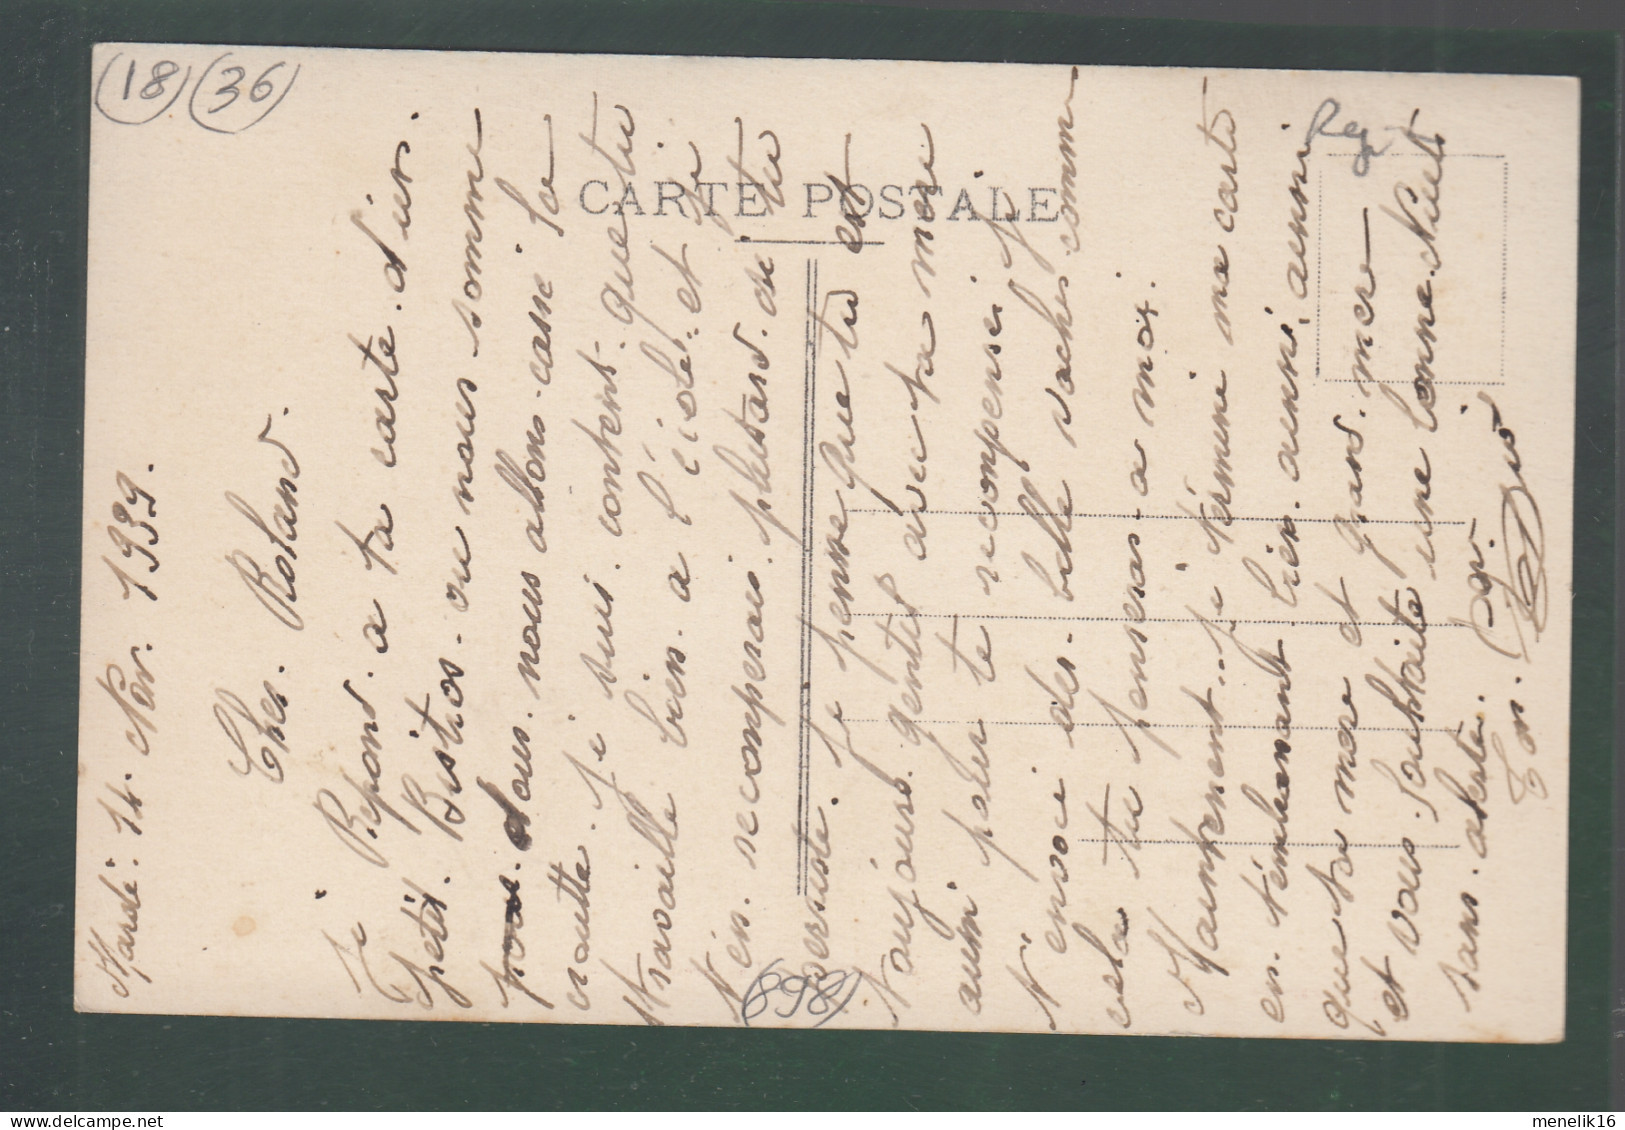 18 36
Reg
CARTE POSTALE
Mardi. 14. Nov. 1939.
Cher. Roland.
Je Répond. a ta carte. d'un.
petit. Bistros. ou nous somme
pour. tous. nous allons. casse la
croutte. Je suis. content. que tu
travaille bien. a l'école. et je
t'en. recompenserais. plustard. de tu
verssite. Je pensse que tu est
toujours. gentil avec ta mere
aussi pour te recompensé je
t'envoi des. belle vaches comme
cela tu penseras a moi.
Maintenent. je términe ma carte
en. t'embrassant. bien. ainssi, ainssi
que ta mere et grand. mere
et vous. Souhaite une bonne. Nuits
sans. alerte.
Ton. Papi.
898
menelik16